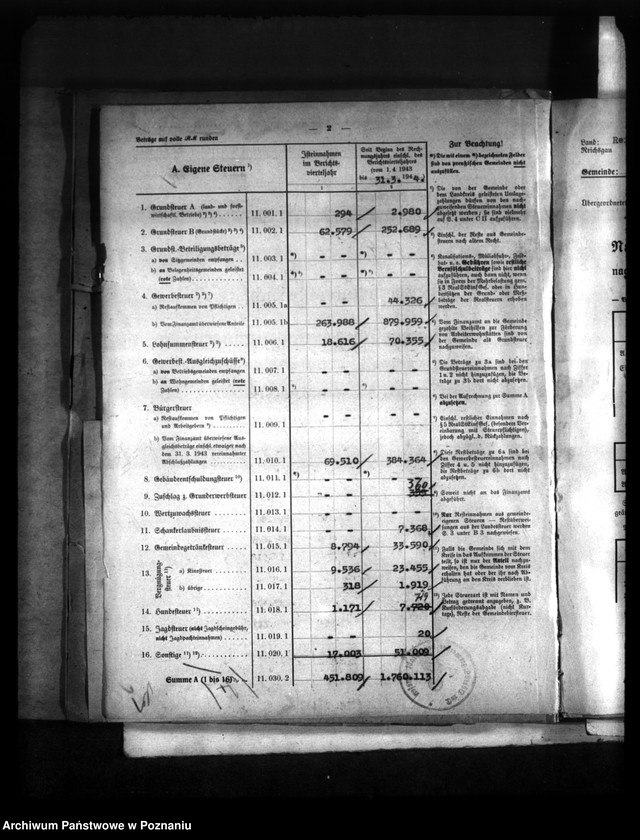 — 2 —
Beträge auf volle RM runden
A. Eigene Steuern ¹)
Isteinnahmen
im Berichts-
vierteljahr
Seit Beginn des Rech-
nungsjahres einschl. des
Berichtsvierteljahrs
(vom 1. 4. 1943
bis 31.3. 1944.)
1. Grundsteuer A (land- und forst-
wirtschaftl. Betriebe)
11. 001. 1 294 2.980
2. Grundsteuer B (Grundstücke)
11. 002. 1 62.579 252.689
3. Grundst.-Beteiligungsbeträge
a) von Sitzgemeinden empfangen
11. 003. 1 - - - -
b) an Belegenheitsgemeinden geleistet
(rote Zahlen)
11. 004. 1 - - - -
4. Gewerbesteuer
a) Restaufkommen von Pflichtigen
11. 005. 1a - - 44.326
b) Vom Finanzamt überwiesene Anteile
11. 005. 1b 263.988 879.959
5. Lohnsummensteuer
11. 006. 1 18.616 70.355
6. Gewerbest.-Ausgleichzuschüsse
a) von Betriebsgemeinden empfangen
11. 007. 1 - - - -
b) an Wohngemeinden geleistet (rote
Zahlen)
11. 008. 1 - - - -
7. Bürgersteuer
a) Restaufkommen von Pflichtigen
und Arbeitgebern
11. 009. 1 - - - -
b) Vom Finanzamt überwiesene Aus-
gleichsbeträge einschl. etwaiger nach
dem 31. 3. 1943 vereinnahmter
Abschlußzahlungen
11. 010. 1 69.510 384.364
8. Gebäudeentschuldungsteuer ¹⁰)
11. 011. 1 - - - -
9. Zuschlag z. Grunderwerbsteuer
11. 012. 1 - - 360
10. Wertzuwachsteuer
11. 013. 1 - - - -
11. Schankerlaubnissteuer
11. 014. 1 - - 7.368
12. Gemeindegetränkesteuer
11. 015. 1 8.794 33.599
13. Vergnügung-
steuer
a) Kinosteuer
11. 016. 1 9.536 23.455
b) übrige
11. 017. 1 318 1.919
14. Hundesteuer
11. 018. 1 1.171 7.720 719
15. Jagdsteuer (nicht Jagdscheingebühr,
nicht Jagdpachteinnahmen)
11. 019. 1 - - 20
16. Sonstige
11. 020. 1 17.003 51.009
Summe A (1 bis 16)
11. 030. 2 451.809 1.760.113
Zur Beachtung!
*) Die mit einem *) bezeichneten Felder
sind von preußischen Gemeinden nicht
auszufüllen.
¹) Die von der Gemeinde oder
dem Landkreis geleisteten Umlage-
zahlungen dürfen von den nach-
gewiesenen Steuereinnahmen nicht
abgesetzt werden; sie sind vielmehr
auf S. 4 unter C II aufzuführen.
Einschl. der Reste aus Gemeinde-
steuern nach altem Recht.
Vom Finanzamt an die Gemeinde
gezahlte Beihilfen zur Förderung
von Arbeiterwohnstätten sind von
der Gemeinde als Grundsteuer
nachzuweisen.
Die Beträge zu 3a sind bei den
Grundsteuereinnahmen nach Ziffer
1 u. 2 nicht hinzuzufügen, die Be-
träge zu 3b dort nicht abzusetzen.
Bei der Aufrechnung zur Summe A
abzusetzen.
Einschl. restlicher Einnahmen nach
Die Restbeträge zu 6a sind bei
den Gewerbesteuereinnahmen nach
Ziffer 4 u. 5 nicht hinzuzufügen,
die Restbeträge zu 6b dort nicht
abzusetzen.
Soweit nicht an das Finanzamt
abgeführt.
¹⁰) Nur Resteinnahmen aus gemeinde-
eigenen Steuern — Restüberwei-
sungen aus der Landessteuer werden
S. 3 unter B 3 nachgewiesen.
Falls die Gemeinde sich mit dem
Kreise in das Aufkommen der Steuer
teilt, so ist nur der Anteil nachzu-
weisen, den die Gemeinde vom Kreis
erhalten hat oder der ihr nach Ab-
führung an den Kreis verblieben ist.
Jede Steuerart ist mit Namen und
Betrag getrennt anzugeben, z. B.
Kurförderungsabgabe (nicht Kur-
taxe), Reste der Gemeindebiersteuer.
Land:
Reichsgau
Gemeinde:
Archiwum Państwowe w Poznaniu